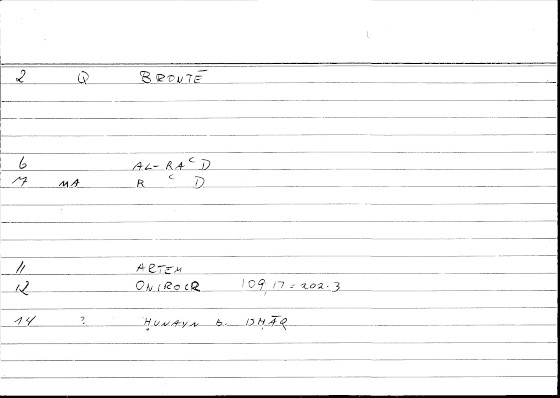 2 Q BRONTĒ
6 AL-RAᶜD
7 MA R ᶜ D
11 ARTEM
12 ONIROCR 109,17 = 202.3
14 ? ḤUNAYN b. ISḤĀQ